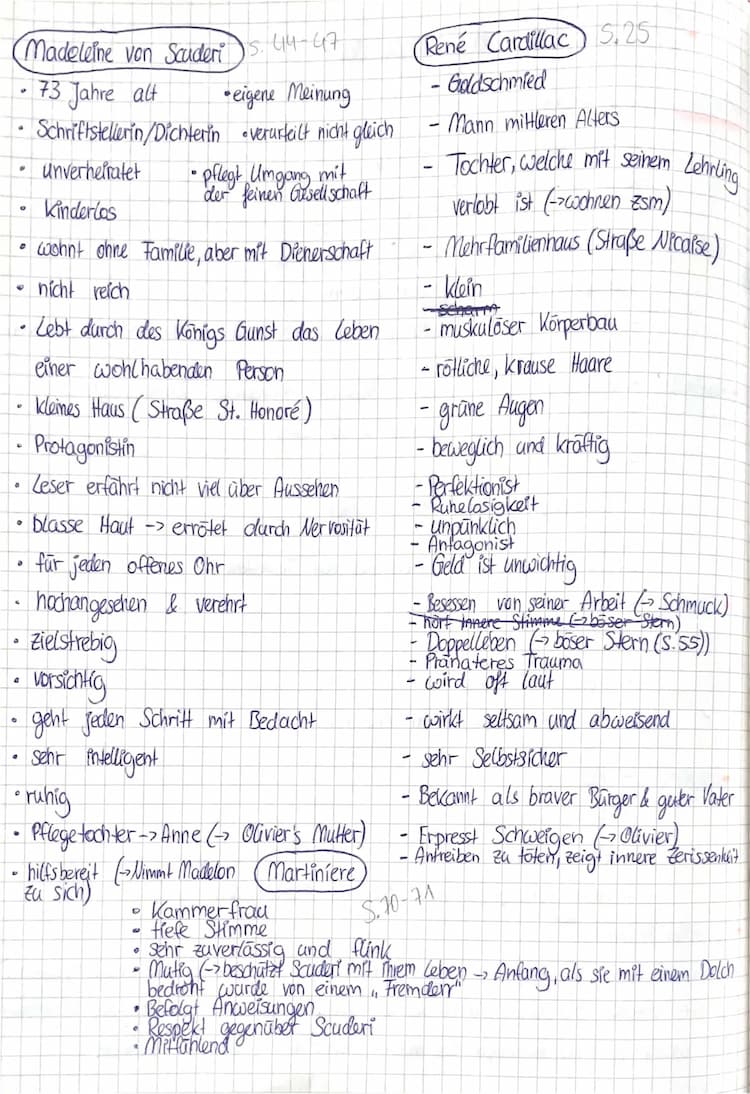 Madeleine von Scuderi S. 44-47
• 73 Jahre alt •eigene Meinung
• Schriftstellerin/Dichterin •verurteilt nicht gleich
• unverheiratet • pflegt Umgang mit
der feinen Gesellschaft
• Kinderlos
• wohnt ohne Familie, aber mit Dienerschaft
• nicht reich
• Lebt durch des Königs Gunst das Leben
einer wohlhabenden Person
• kleines Haus (Straße St. Honoré)
• Protagonistin
• Leser erfährt nicht viel über Aussehen
• blasse Haut -> errötet durch Nervosität
• für jeden offenes Ohr
• hochangesehen & verehrt
• zielstrebig
• vorsichtig
• geht jeden Schritt mit Bedacht
• sehr intelligent
• ruhig
• Pflegetochter -> Anne (-> Olivier's Mutter)
• hilfsbereit (->Nimmt Madelon
zu sich)
René Cardillac S. 25
- Goldschmied
- Mann mittleren Alters
- Tochter, welche mit seinem Lehrling
verlobt ist (->wohnen zsm)
- Mehrfamilienhaus (Straße Nicaise)
- klein
- muskulöser Körperbau
- rötliche, krause Haare
- grüne Augen
- beweglich und kräftig
- Perfektionist
- Ruhelasigkeit
- Unpünklich
- Antagonist
- Geld ist unwichtig
- Besessen von seiner Arbeit (-> Schmuck)
- hört innere Stimme (->böser Stern)
- Doppelleben (-> böser Stern (S. 55))
- Pränateres Trauma
- wird oft laut
- wirkt seltsam und abweisend
- sehr Selbstsicher
- Bekannt als braver Bürger & guter Vater
- Erpresst Schweigen (->Olivier)
- Antreiben zu töten, zeigt innere Zerissenheit
Martiniere S. 70-71
• Kammerfrau
• tiefe Stimme
• sehr zuverlässig und flink
• Mutig (->beschützt Scuderi mit ihrem Leben -> Anfang, als sie mit einem Dolch
bedroht wurde von einem „Fremden"
• Befolgt Anweisungen
• Respekt gegenüber Scuderi
• Mitfühlend